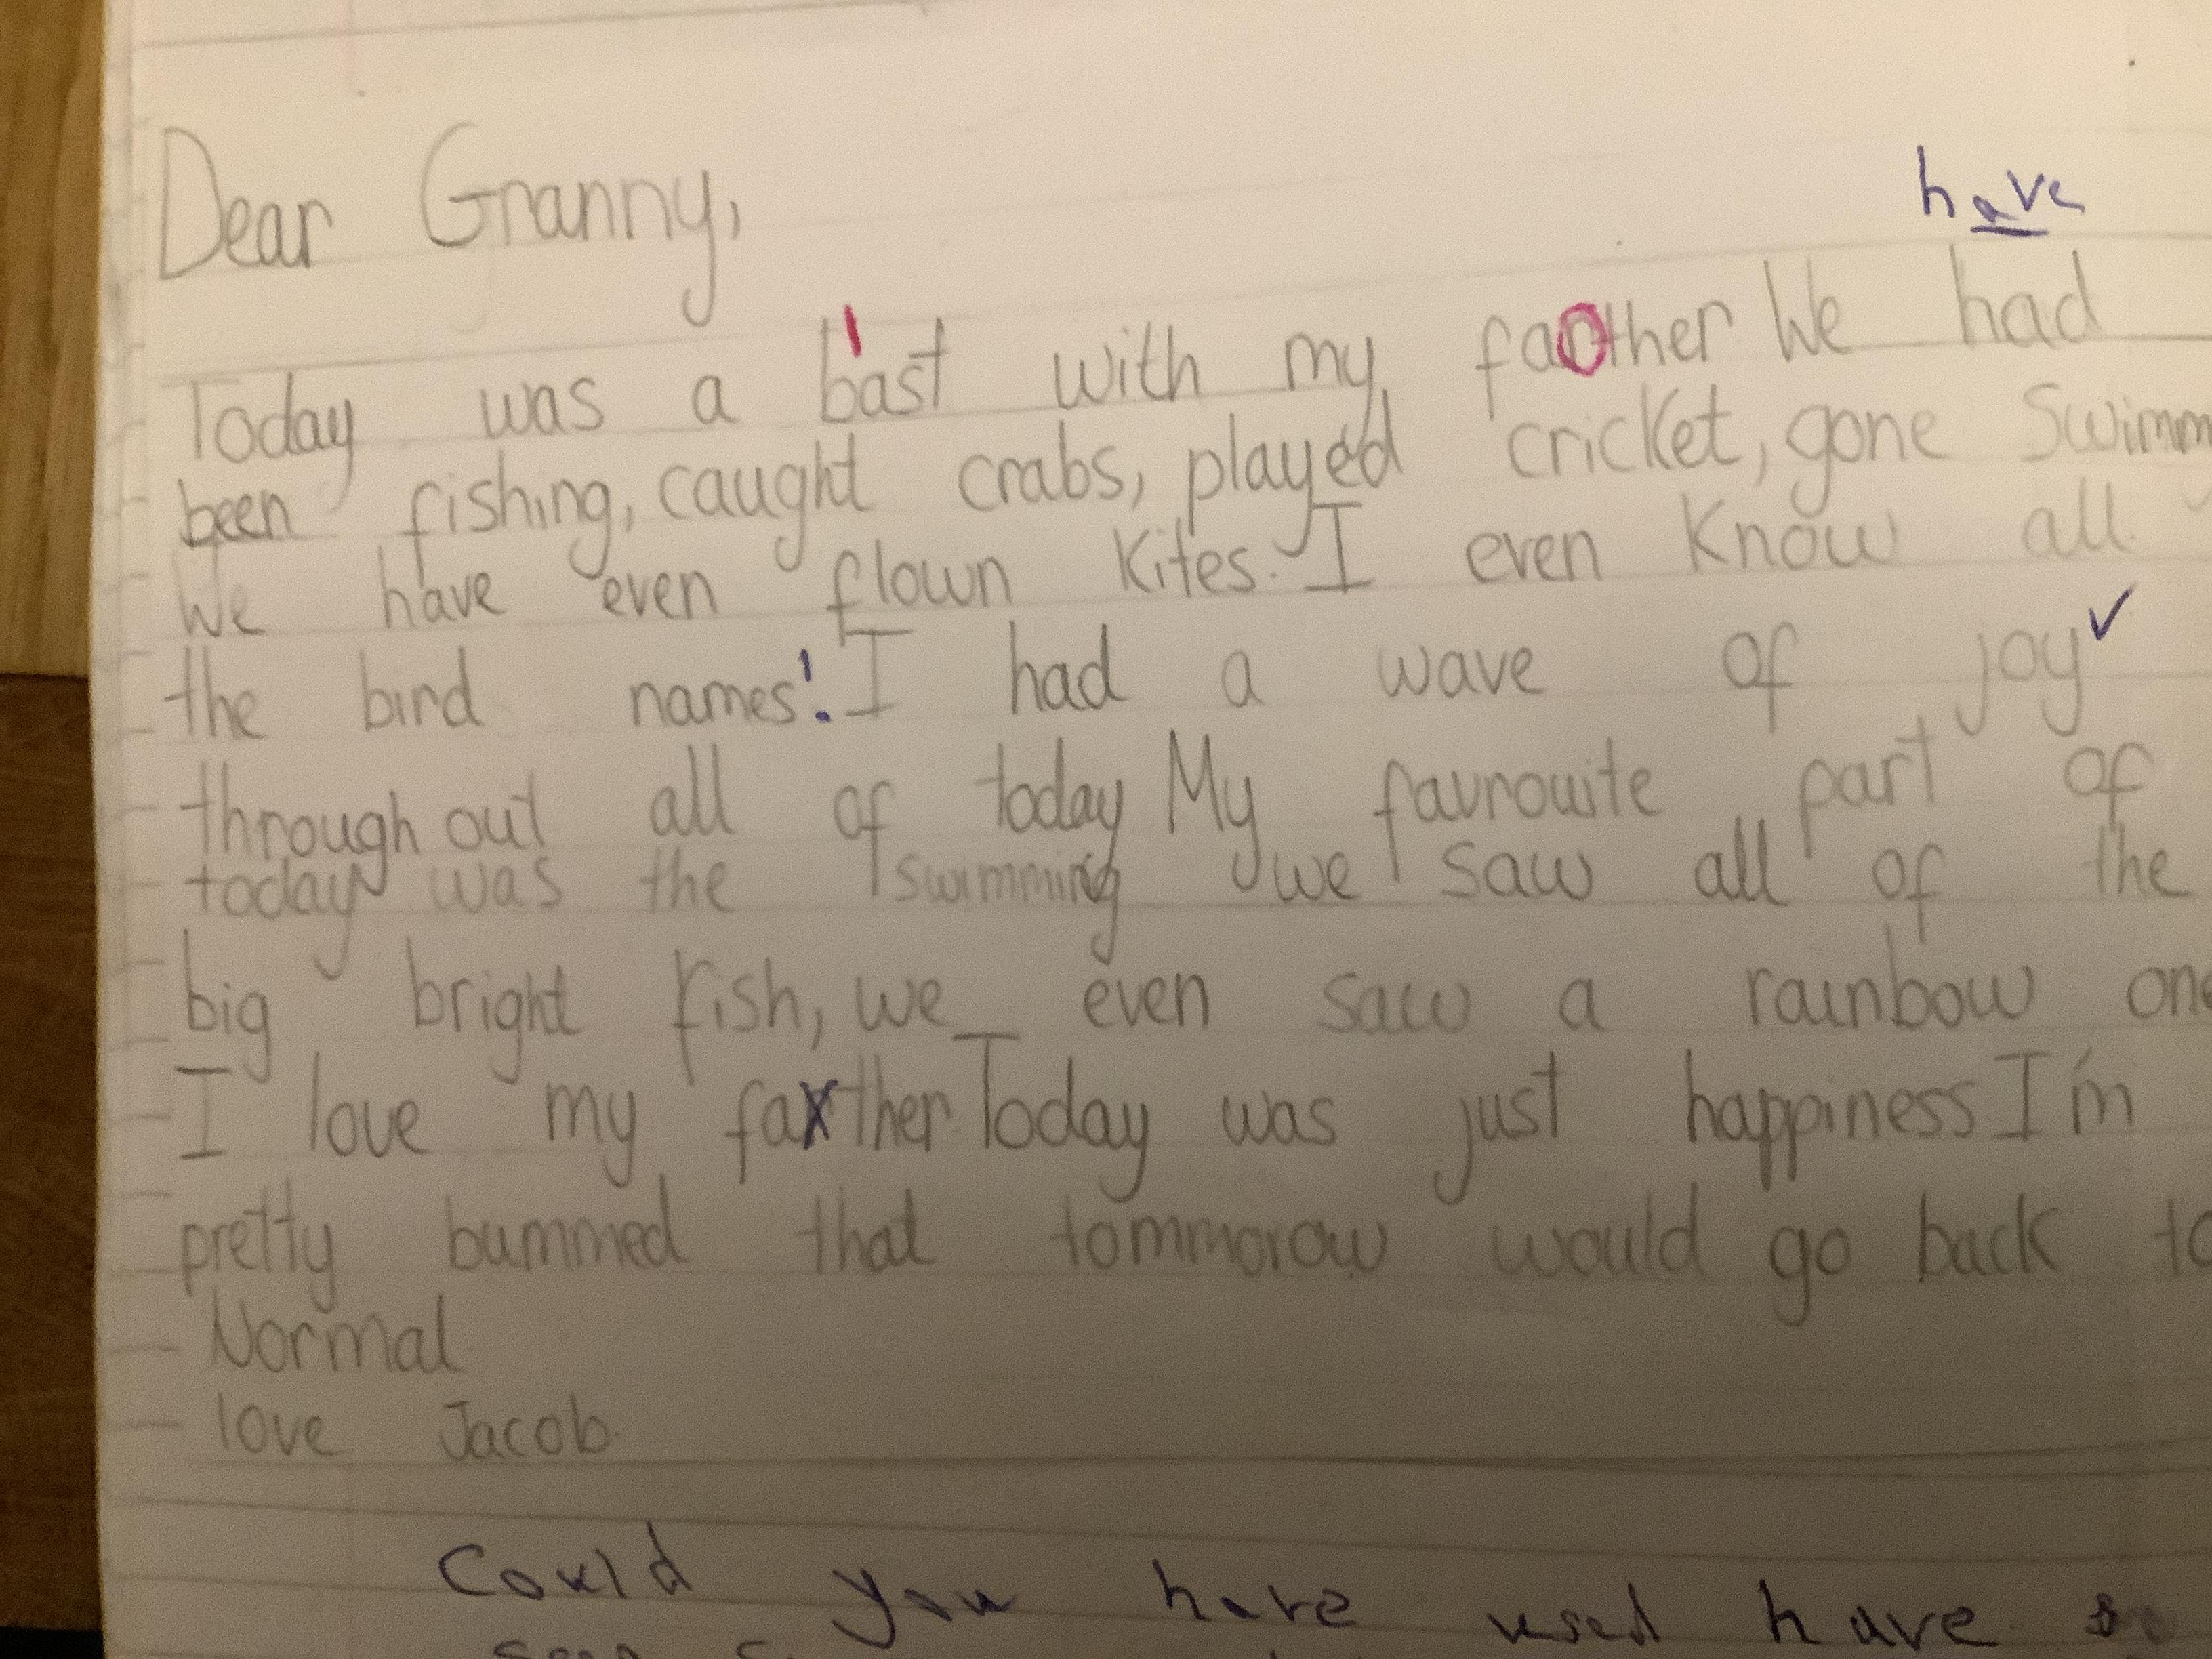 Dear Granny,
have
Today was a bast with my faother We had
been fishing, caught crabs, played cricket, gone Swimm
We have even flown Kites. I even Know all
the bird names! I had a wave of joy ✓
through out all of today My favrouite part of
today was the swimming we saw all of the
big bright fish, we even saw a rainbow one
I love my father. Today was just happiness I'm
pretty bummed that tommorow would go back to
Normal
love Jacob.
Could you have used have